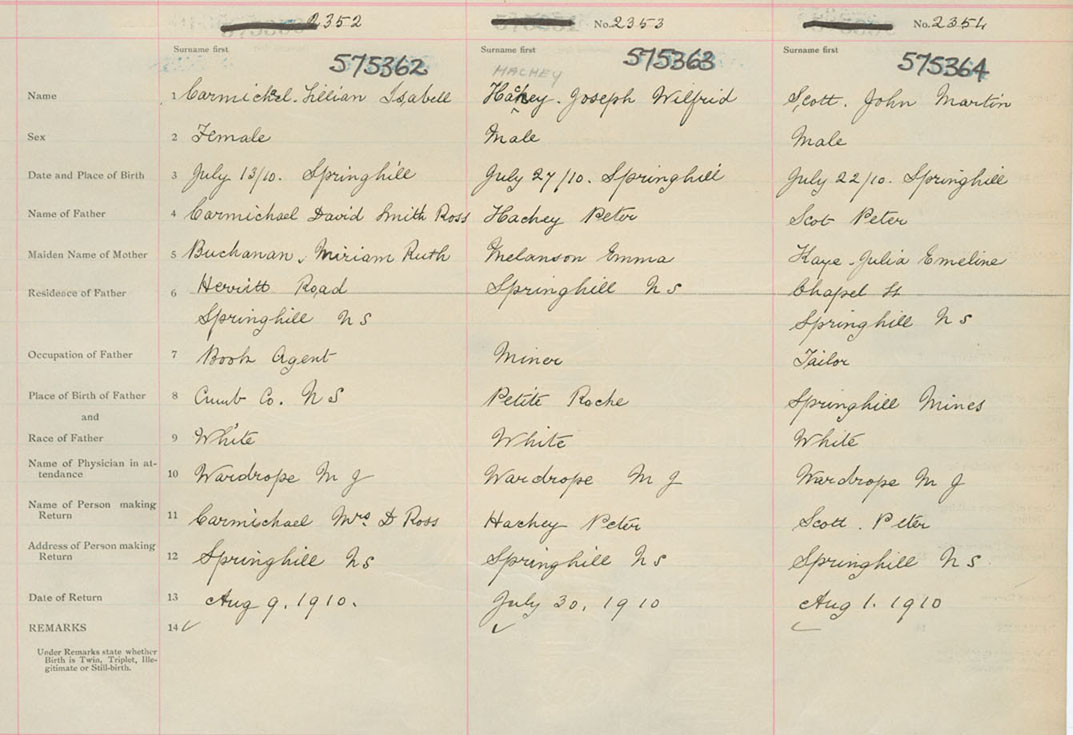 2352 No. 2353 No. 2354
Surname first Surname first Surname first
575362 575363 575364
MACHEY
Name 1 Carmichel. Lillian Isabell Hachey. Joseph Wilfrid Scott. John Martin
Sex 2 Female Male Male
Date and Place of Birth 3 July 13/10. Springhill July 27/10. Springhill July 22/10. Springhill
Name of Father 4 Carmichael David Smith Ross Hachey Peter Scot Peter
Maiden Name of Mother 5 Buchanan, Miriam Ruth Melanson Emma Kaye. Julia Emeline
Residence of Father 6 Herritt Road Springhill N S Chapel St
Springhill N S Springhill N S
Occupation of Father 7 Book Agent Miner Tailor
Place of Birth of Father 8 Cumb Co. N S Petite Roche Springhill Mines
and
Race of Father 9 White White White
Name of Physician in at-
tendance 10 Wardrope M J Wardrope M J Wardrope M J
Name of Person making
Return 11 Carmichael Mrs D Ross Hachey Peter Scott. Peter
Address of Person making
Return 12 Springhill N S Springhill N S Springhill N S
Date of Return 13 Aug 9. 1910. July 30, 1910 Aug 1. 1910
REMARKS 14
Under Remarks state whether
Birth is Twin, Triplet, Ille-
gitimate or Still-birth.